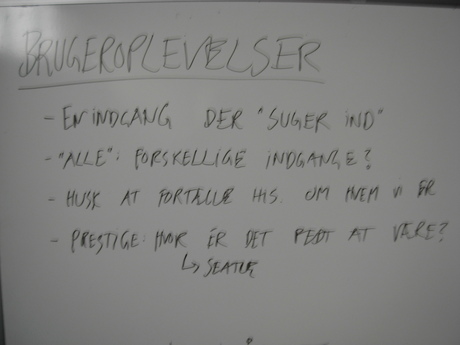 BRUGEROPLEVELSER
- EN INDGANG DER "SUGER IND"
- "ALLE": FORSKELLIGE INDGANGE?
- HUSK AT FORTÆLLE HIS. OM HVEM VI ER
- PRESTIGE: HVOR ER DET FEDT AT VÆRE?
↳ SEATLE